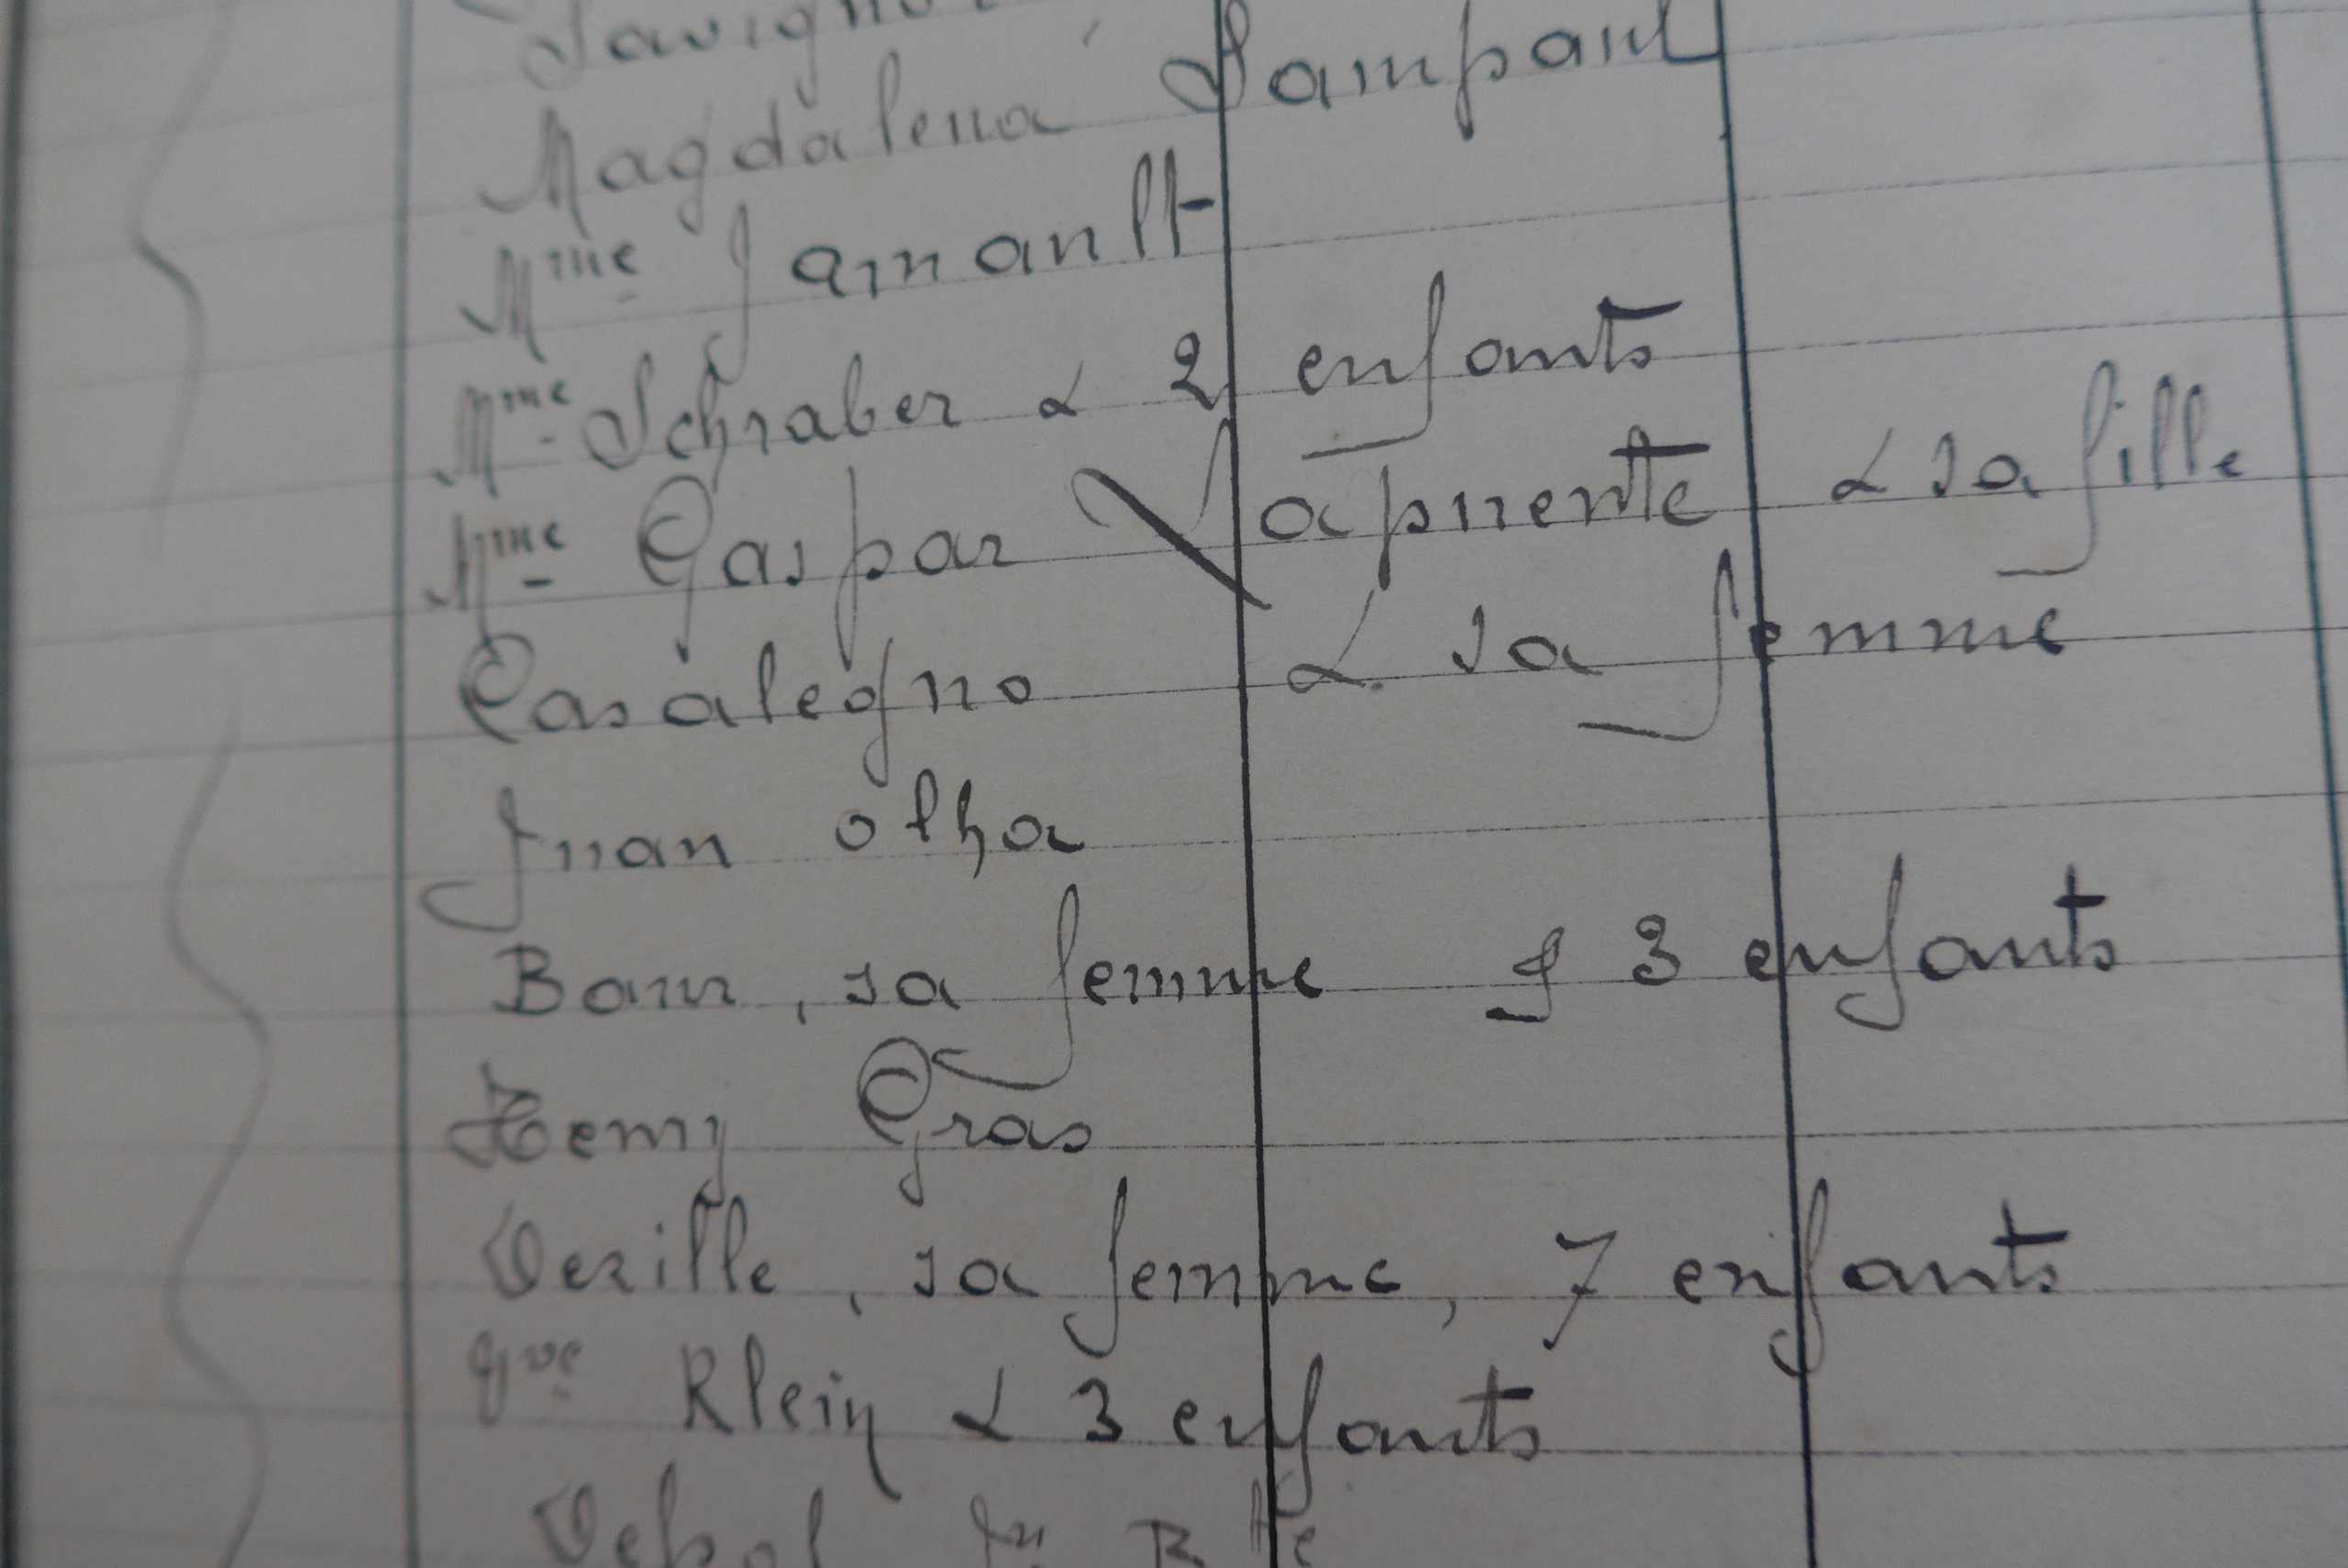 Magdalena Sampaul
Mme Jamault
Mme Schraber & 2 enfants
Mme Gaspar Lapuente & sa fille
Casalegno & sa femme
Juan olha
Baur, sa femme & 3 enfants
Henry Gras
Verille, sa femme, 7 enfants
Vve Klein & 3 enfants